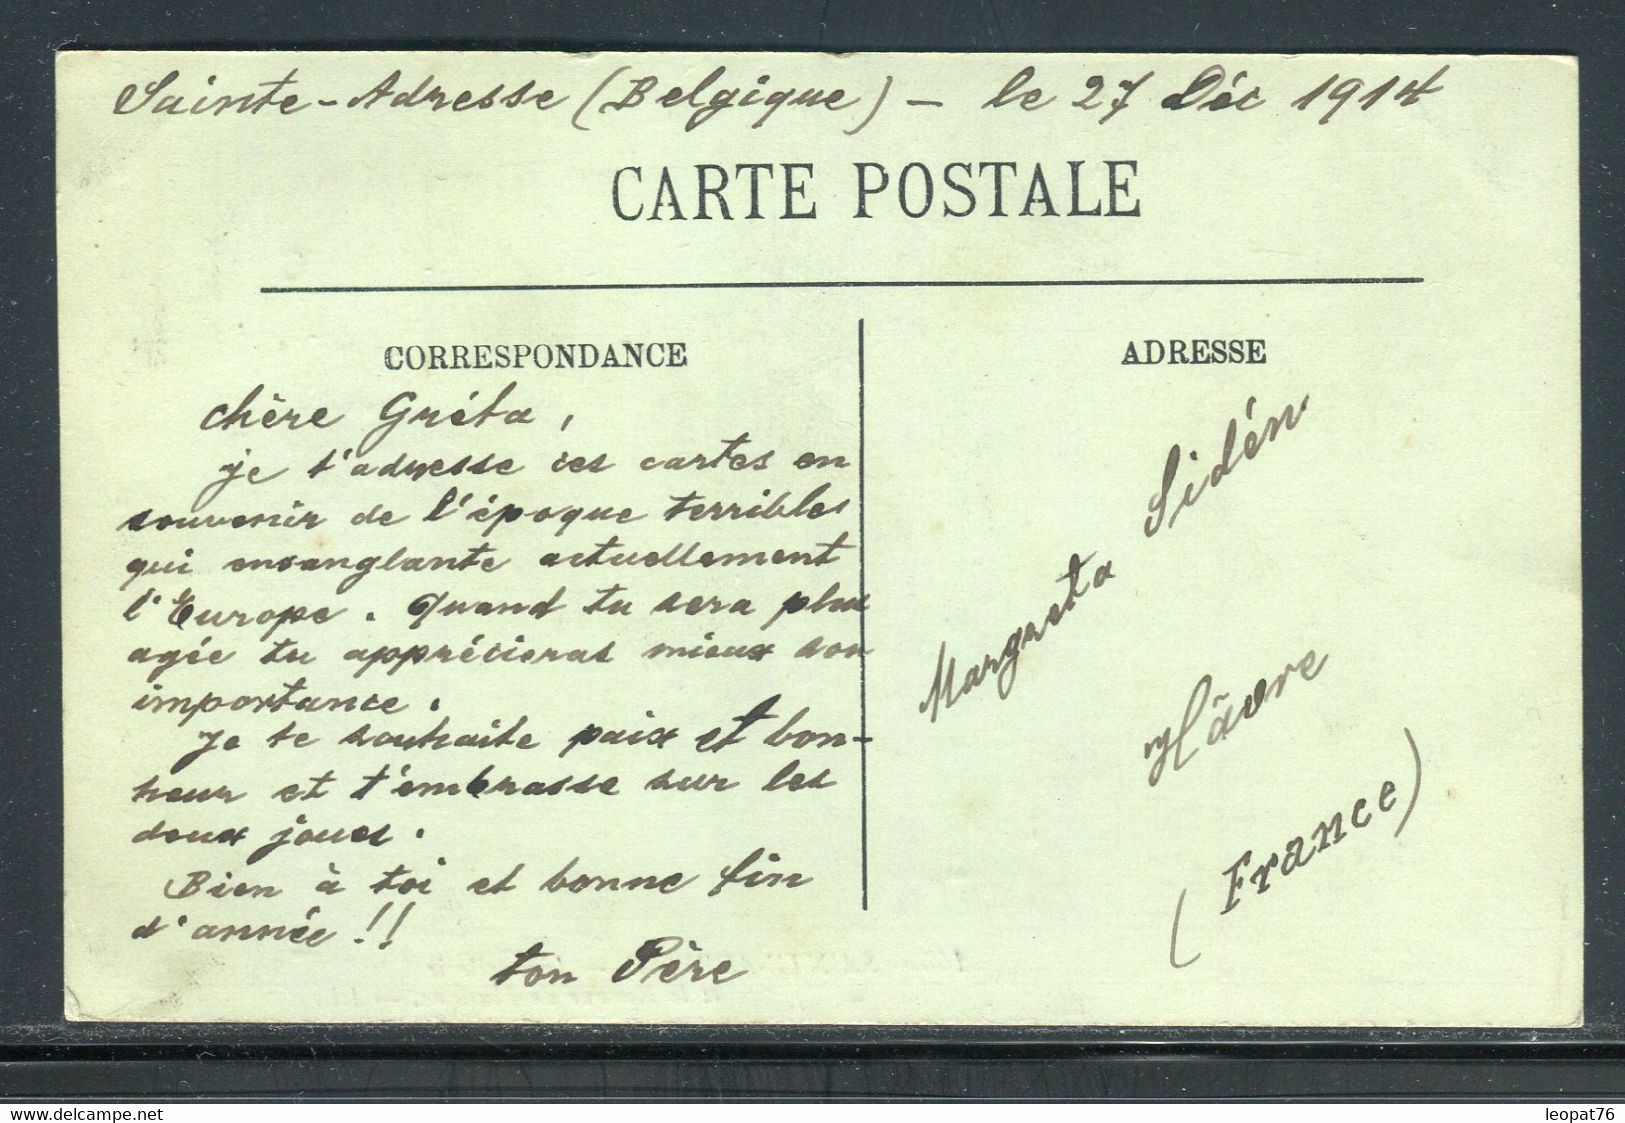 Sainte-Adresse (Belgique) - le 27 Déc 1914
CARTE POSTALE
CORRESPONDANCE
chère Gréta,
je t'adresse ces cartes en
souvenir de l'époque terribles
qui ensanglante actuellement
l'Europe. Quand tu sera plus
agée tu apprécieras mieux son
importance.
Je te souhaite paix et bon-
heur et t'embrasse sur les
deux joues.
Bien à toi et bonne fin
d'année!!
ton Père
ADRESSE
Margreta Sidén
Hâvre
(France)
www.delcampe.net
leopat76